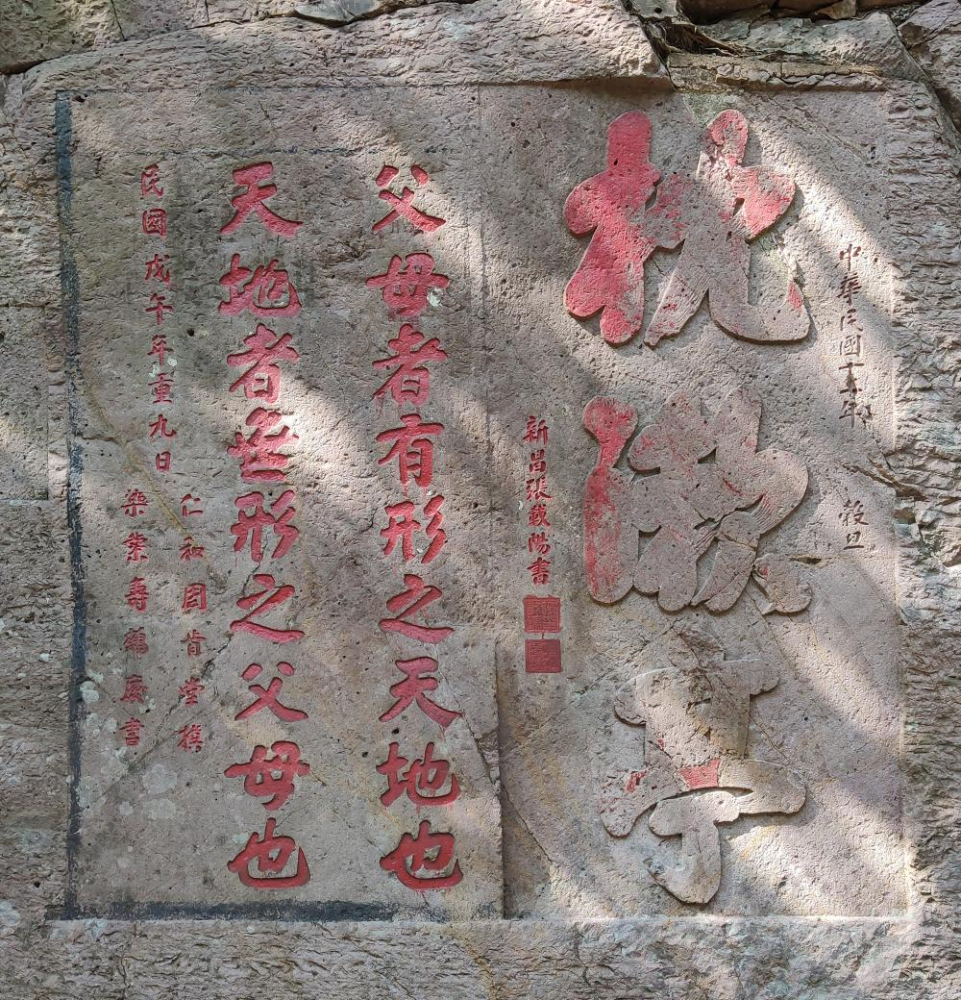 中華民國十年 穀旦
枕漱亭
新昌張載陽書
父母者有形之天地也
天地者無形之父母也
民國戊午年重九日
仁和周肯堂撰
樂業壽鶴慶書